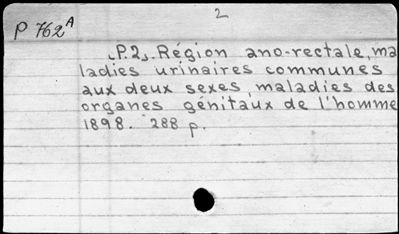 2
P 762A
(P.2). Région ano-rectale, ma
ladies urinaires communes
aux deux sexes, maladies des
organes génitaux de l'homme
1898. 288 p.